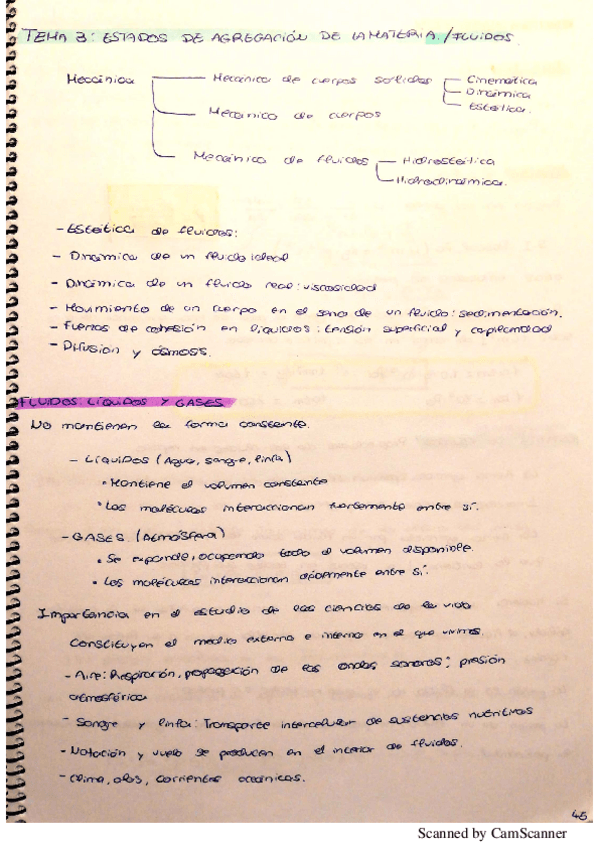 TEMA 3: ESTADOS DE AGREGACIÓN DE LA MATERIA./FLUIDOS.
Mecánica
Mecánica de cuerpos sólidos
Cinemática
Dinámica
Estática.
Mecánica de cuerpos
Mecánica de fluidos
Hidrostática
Hidrodinámica.
- Estática de fluidos:
- Dinámica de un fluido ideal
- Dinámica de un fluido real: viscosidad
- Movimiento de un cuerpo en el seno de un fluido: sedimentación.
- Fuerzas de cohesión en líquidos: tensión superficial y capilaridad
- Difusión y ósmosis.
FLUIDOS: LÍQUIDOS Y GASES.
No mantienen la forma constante.
- LÍQUIDOS (Agua, sangre, linfa)
• Mantiene el volumen constante
• Las moléculas interaccionan fuertemente entre sí.
- GASES. (Atmósfera)
• Se expande, ocupando todo el volumen disponible.
• Las moléculas interaccionan débilmente entre sí.
Importancia en el estudio de las ciencias de la vida
Constituyen el medio externo e interno en el que vivimos
- Aire: Respiración, propagación de las ondas sonoras; presión
atmosférica
- Sangre y linfa: Transporte intercelular de sustancias nutritivas
- Natación y vuelo se producen en el interior de fluidos.
- Clima, olas, corrientes oceánicas.
45
Scanned by CamScanner